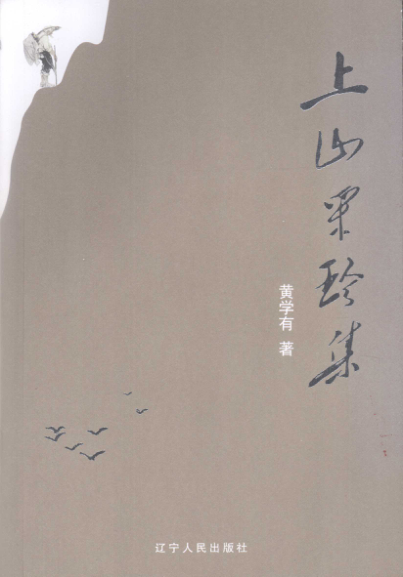 上山采珍集
黄学有 著
辽宁人民出版社